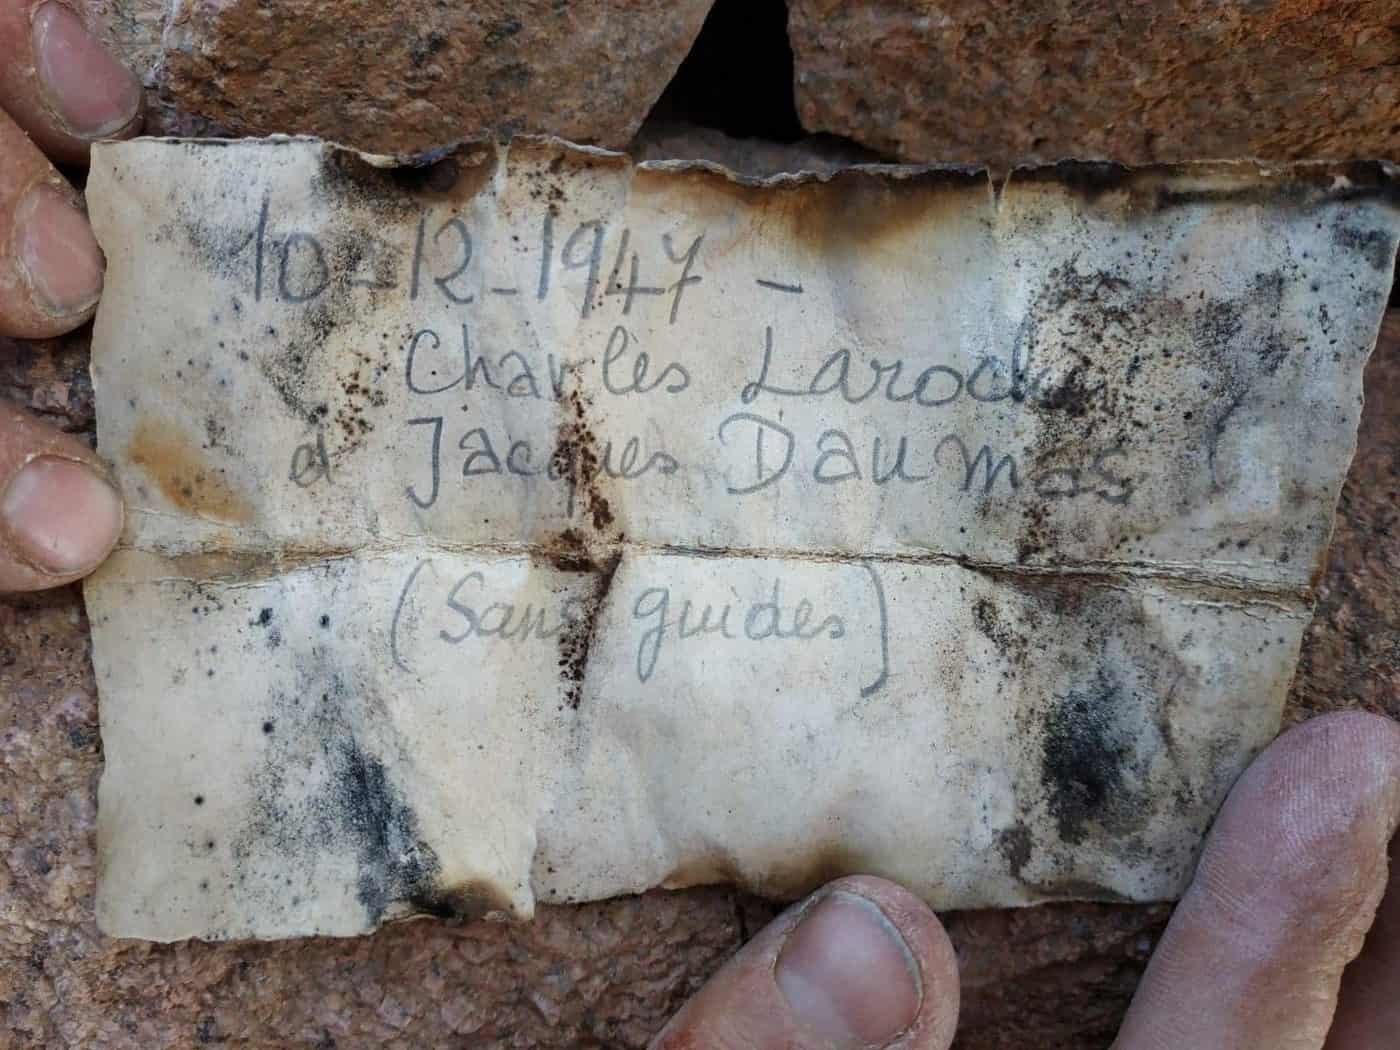 10-12-1947 -
Charles Laroche
et Jacques Daumas
(Sans guides)